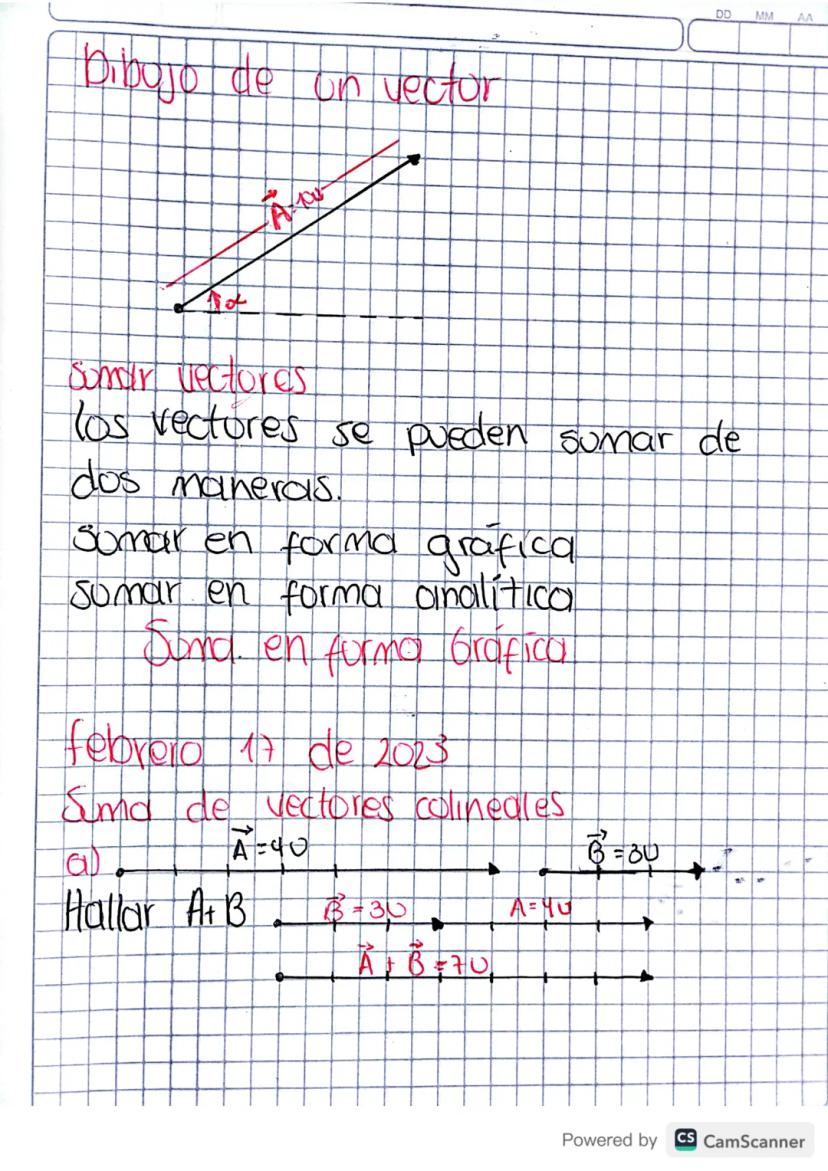 DD MM AA
Dibujo de un vector
A=10u
α
Sumar vectores
los vectores se pueden sumar de
dos maneras.
sumar en forma gráfica
sumar en forma analítica
Suma en forma Gráfica
febrero 17 de 2023
Suma de vectores colineales
a) A=4U B=3U
Hallar A+B B=3U A=4U
A+B=7U
Powered by CS CamScanner